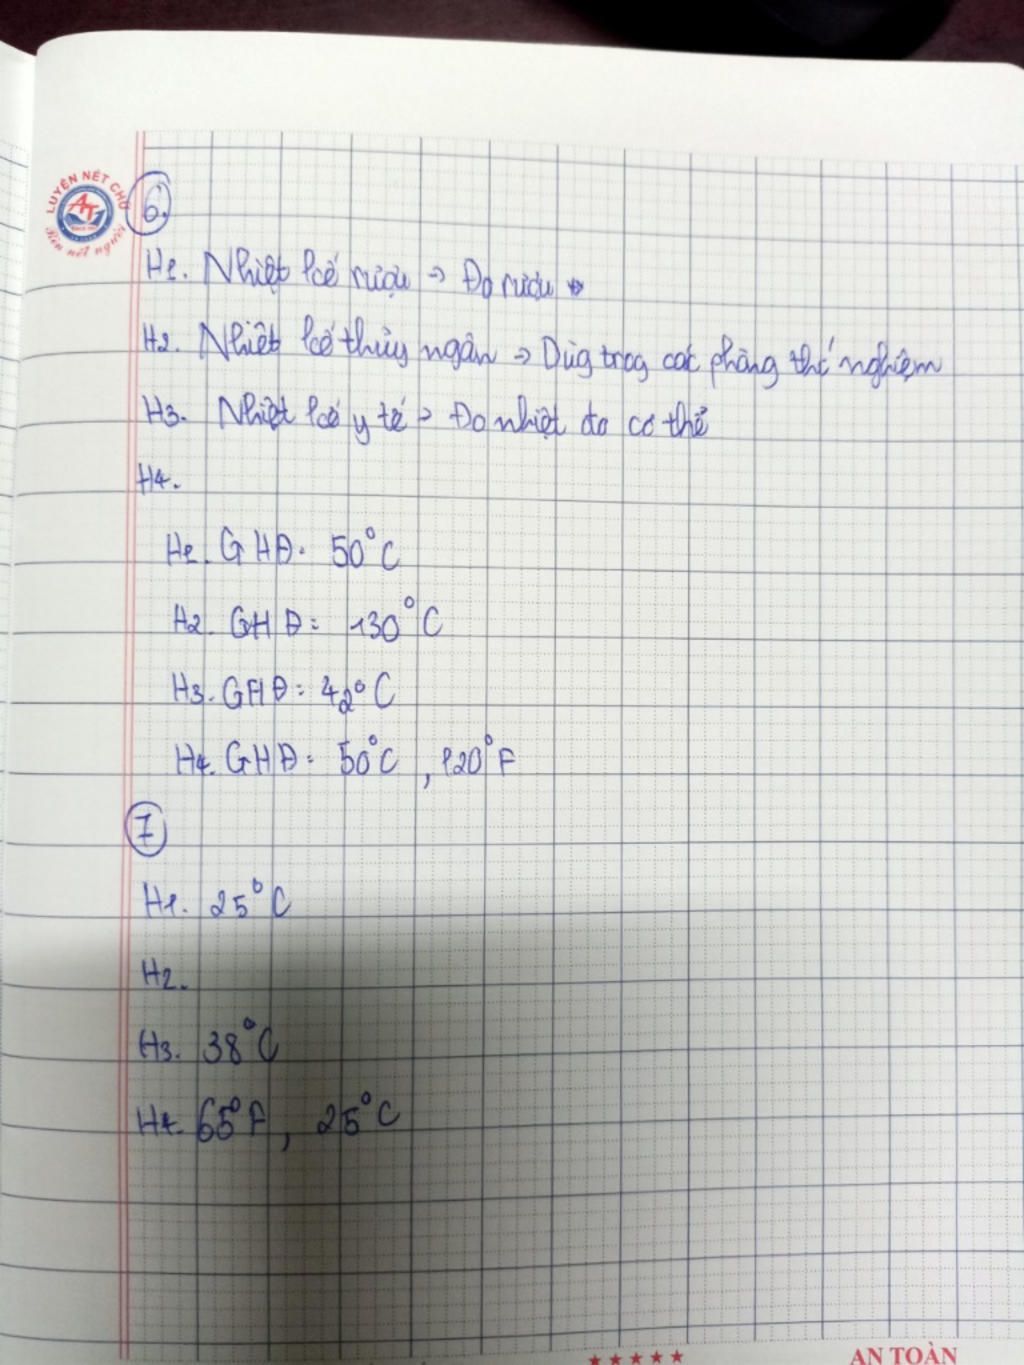 LUYỆN NÉT CHỮ
AT
Rèn nết người
6.
H1. Nhiệt kế rượu → Đo rượu
H2. Nhiệt kế thủy ngân → Dùg trog các phòng thí nghiệm
H3. Nhiệt kế y tế → Đo nhiệt đo cơ thể
H4.
H1. GHĐ: 50°C
H2. GHĐ: 130°C
H3. GHĐ: 42°C
H4. GHĐ: 50°C, 120°F
7
H1. 25°C
H2.
H3. 38°C
H4. 65°F, 25°C
★★★★★ AN TOÀN